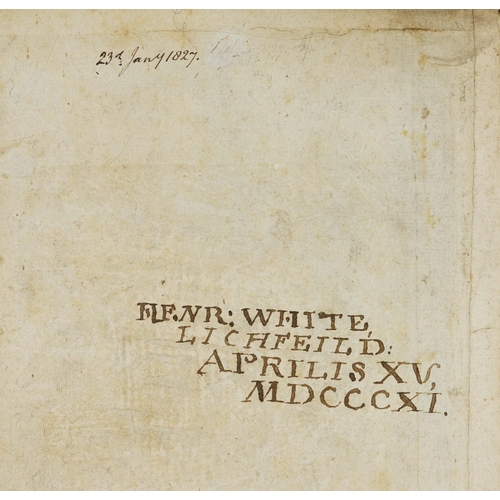 23d. Jany 1827.
HENR: WHITE,
LICHFEILD:
APRILIS XV,
MDCCCXI.